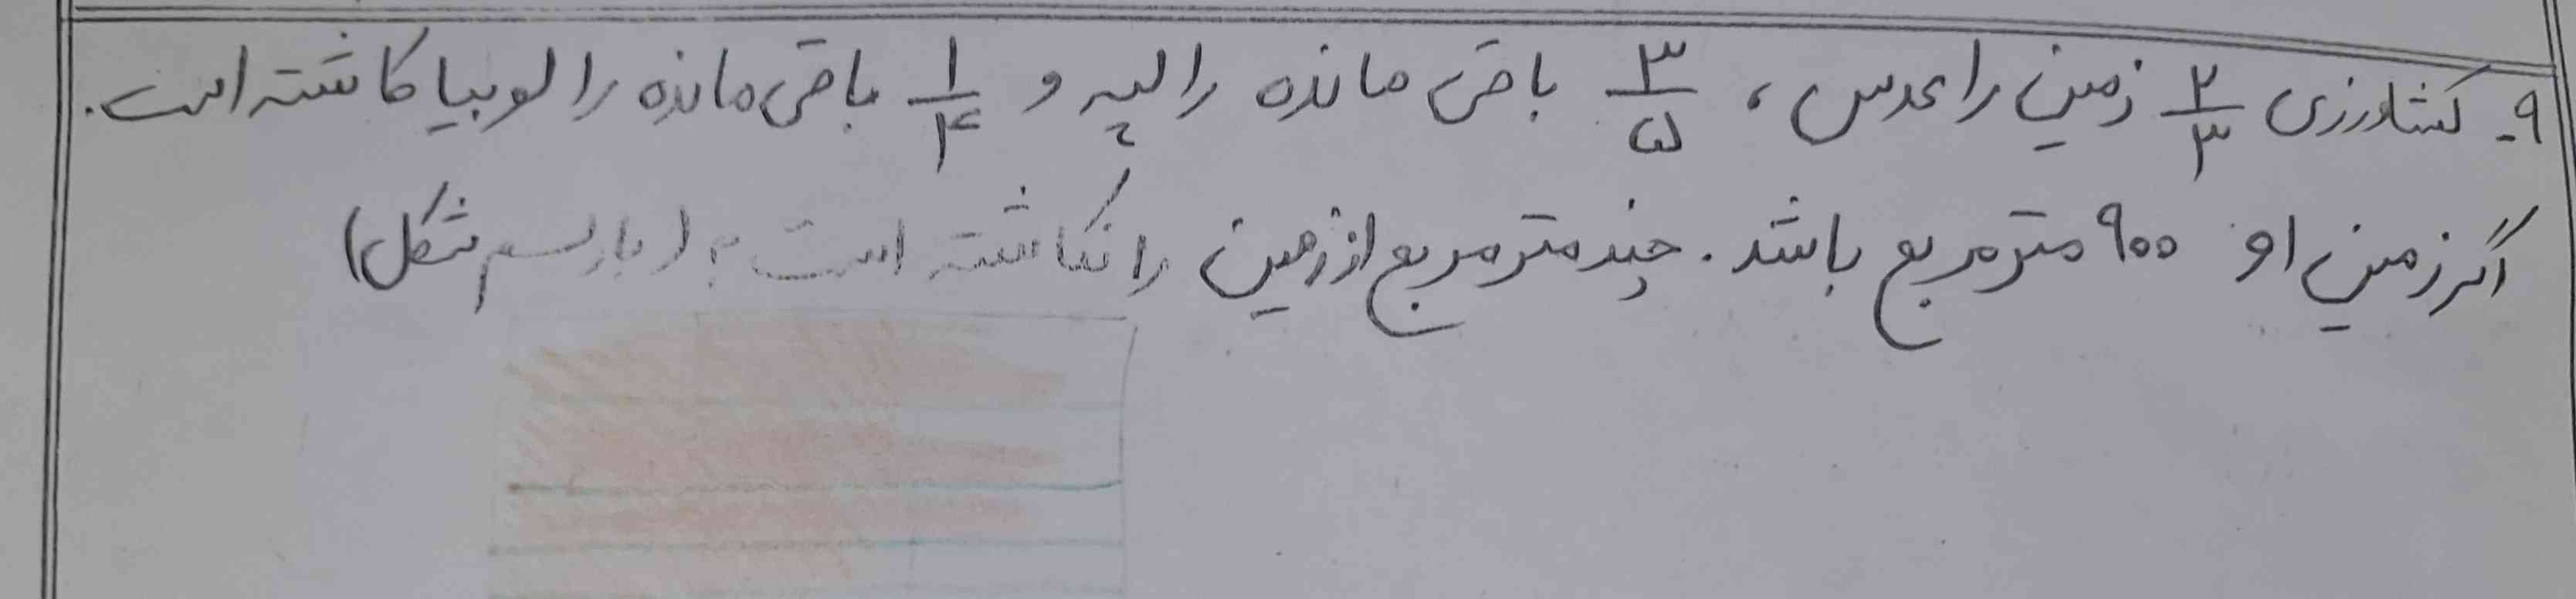 ۹- کشاورزی ۲/۳ زمین را عدس، ۳/۵ باقی مانده را لپه و ۱/۴ باقی مانده را لوبیا کاشته است.
اگر زمین او ۹۰۰ متر مربع باشد. چند متر مربع از زمین را نکاشته است؟ (با رسم شکل)